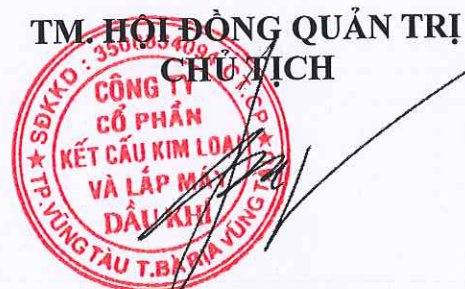 TM. HỘI ĐỒNG QUẢN TRỊ
CHỦ TỊCH
SĐKKD : 3500834094 C.T.C.P
CÔNG TY
CỔ PHẦN
KẾT CẤU KIM LOẠI
VÀ LẮP MÁY
DẦU KHÍ
TP. VŨNG TÀU T.BÀ RỊA VŨNG TÀU